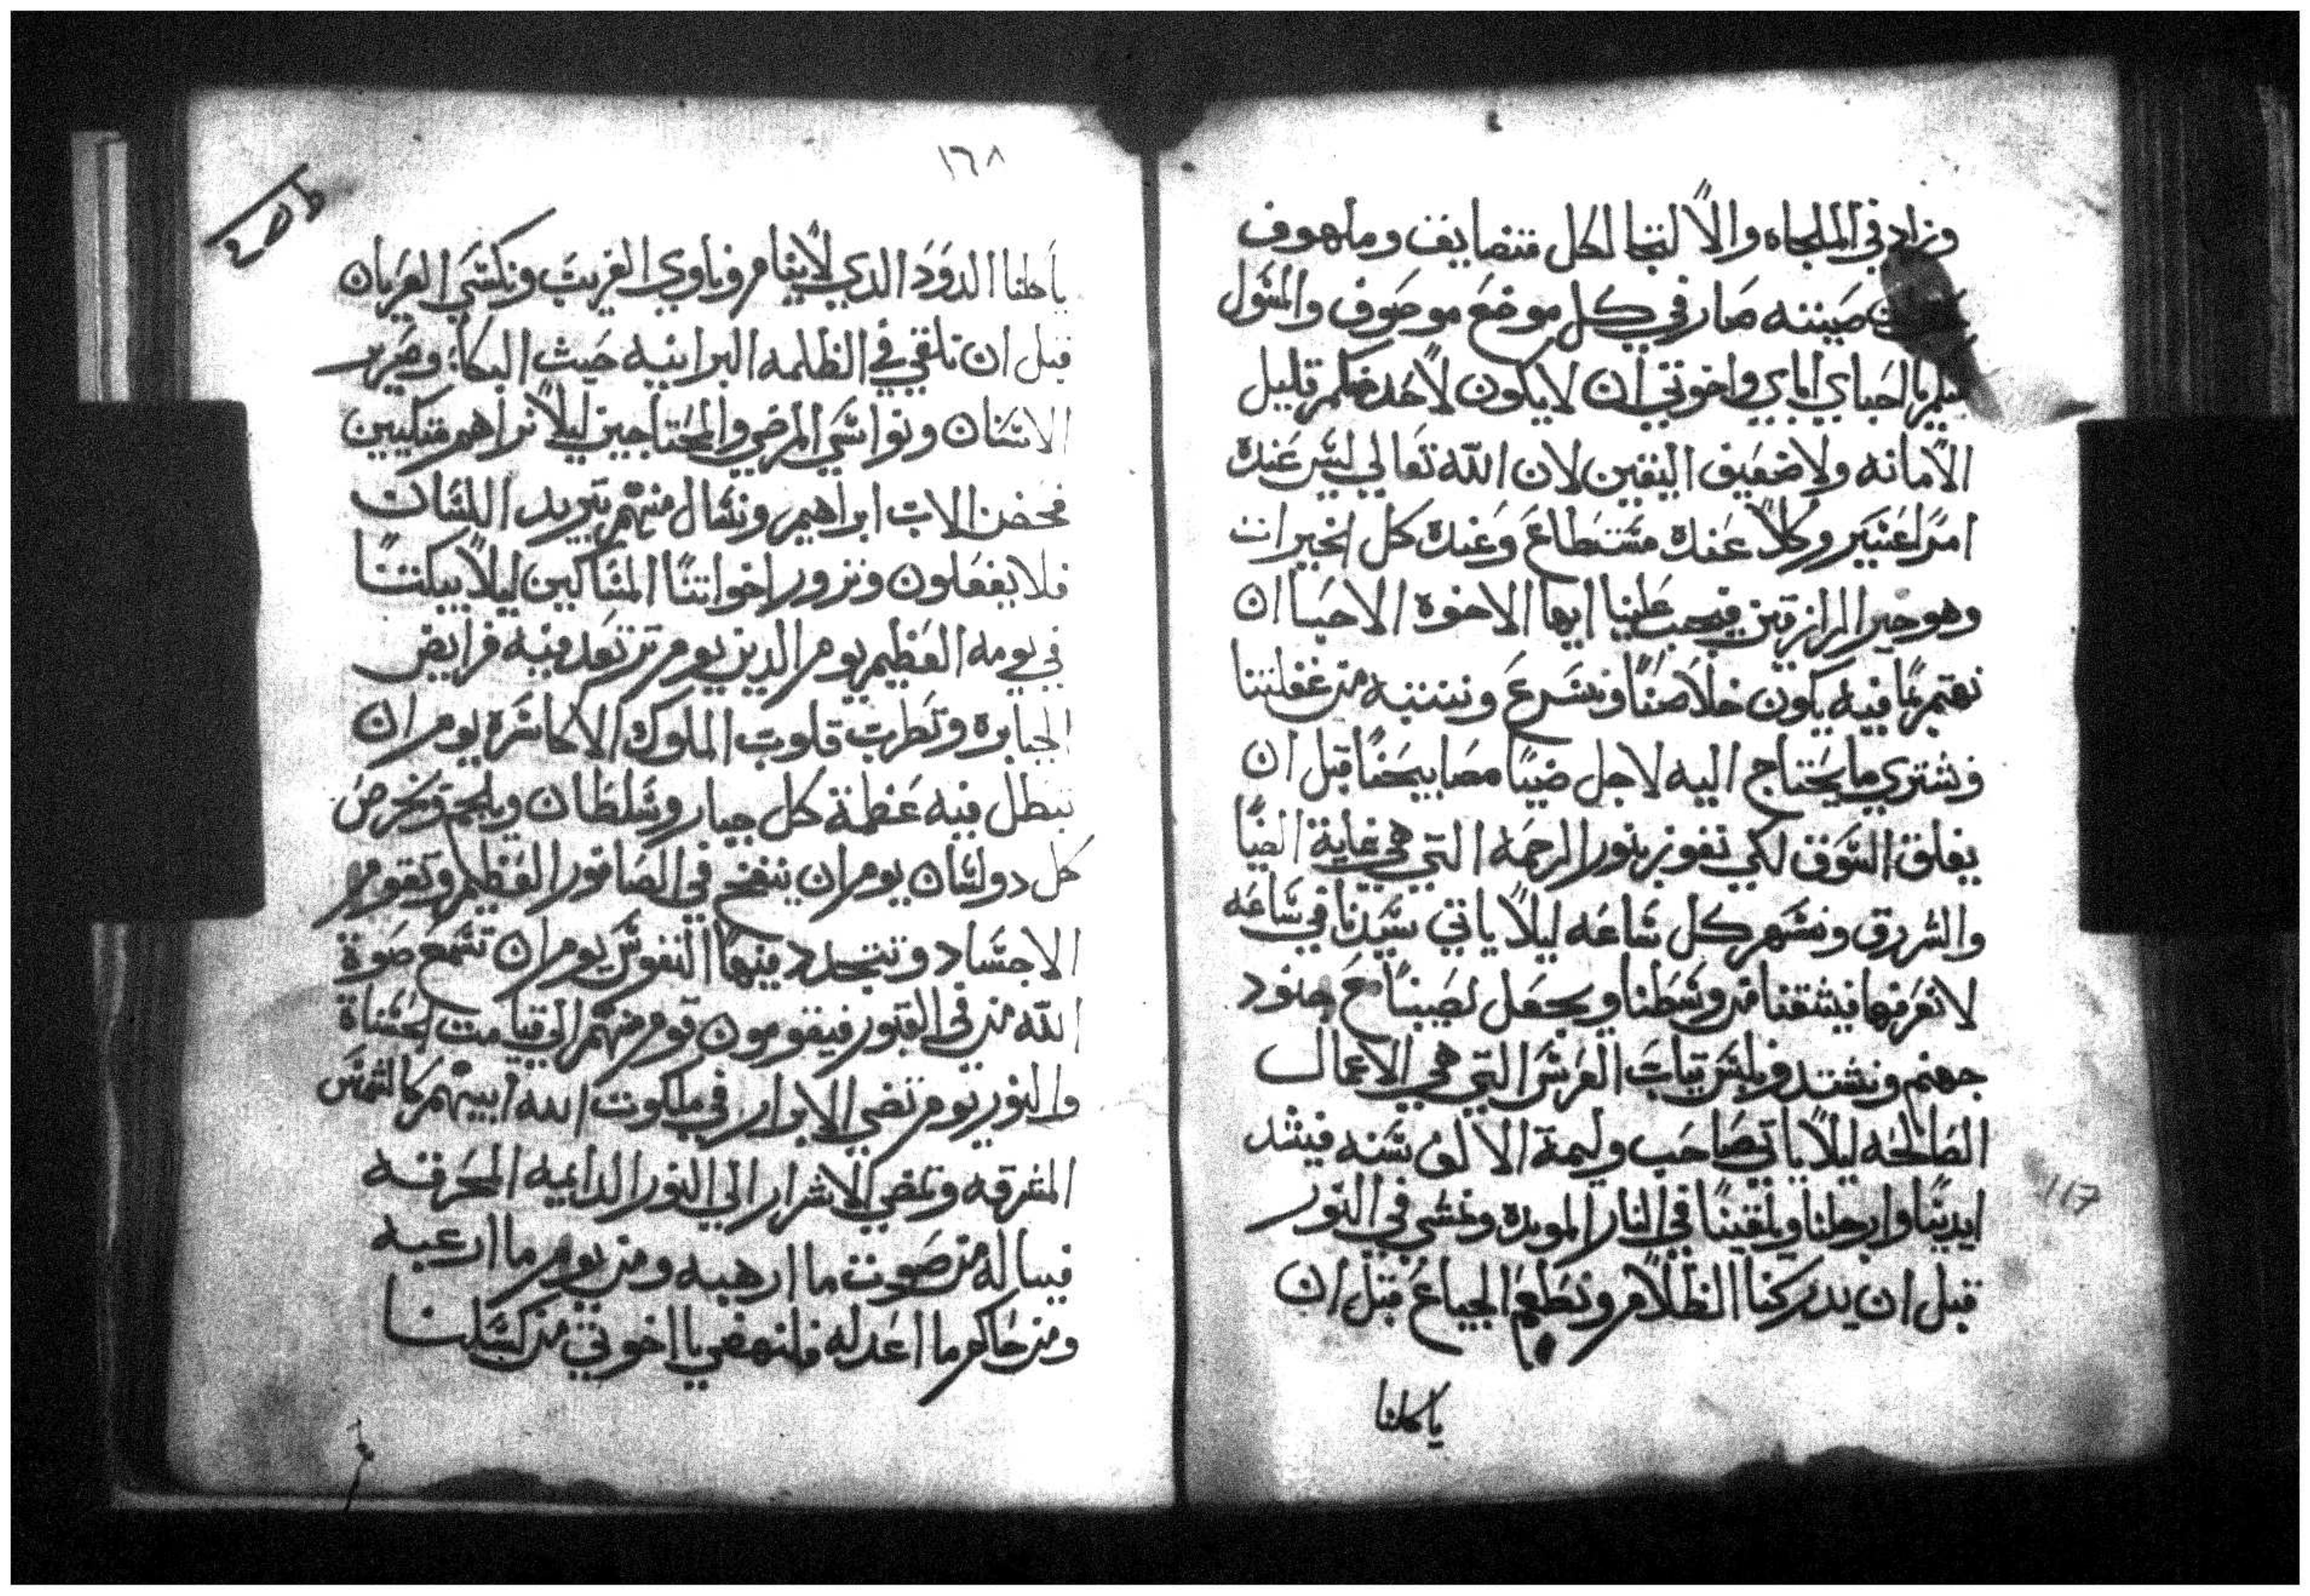 وزاد في الملجاه والالتجا لكل متضايف وملهوف
صيته صار في كل موضع موصوف والمسول
يا احباي اباي واخوتي ان لا يكون لاحد منكم قليل
الامانه ولا ضعيف اليقين لان الله تعالي ليس عنده
امرا عسير وكلا عنده مستطاع وعنده كل الخيرات
وهو خير الرازقين فيجب علينا ايها الاخوة الاحبا ان
نهتم بما فيه يكون خلاصنا ونسرع وننتبه من غفلتنا
ونشتري ما يحتاج اليه لاجل ضيا مصابيحنا قبل ان
يغلق السوق لكي نفوز بنور الرحمه التي هي غاية الضيا
والشروق ونسهر كل ساعه ليلا ياتي سيدنا في ساعه
لا نعرفها فيشقنا من وسطنا ويجعل نصيبنا مع جنود
جهنم ونشتد ونلبس تياب العرس التي هي الاعمال
الصالحه ليلا ياتي صاحب وليمة الالف سنه فيشد
ايدينا وارجلنا ويلقينا في النار الموبده ونمشي في النور
قبل ان يدركنا الظلام ونطعم الجياع قبل ان
ياكلنا
117
١٦٨
ياكلنا الدود الدي لا ينام وناوي الغريب ونكسي العريان
قبل ان نلقي في الظلمه البرانيه حيث البكاء وصرير
الاسنان ونواسي المرضي والمحتاجين ليلا نراهم متكيين
فحضن الاب ابراهيم ونسال منهم تبريد اللسان
فلا يفعلون ونزور اخواتنا المساكين ليلا يبكتنا
في يومه العظيم يوم الدين يوم ترتعد فيه فرايض
الجبابره وتطرب قلوب الملوك الاكاسره يوم ان
تبطل فيه عظمة كل جبار وسلطان ويلجم ويخرص
كل دو لسان يوم ان ينفخ في الصافور العظيم وتقوم
الاجساد وتتجدد فيها النفوس يوم ان تسمع صوة
الله من في القبور فيقومون قوم منهم الي قيامت الحسناة
والنور يوم تضي الابرار في ملكوت الله ابيهم كالشمس
المشرقه وتمضي الاشرار الي النور الدايميه المحرقه
فيا له من صوت ما ارهبه ومن يوم ما ارعبه
ومن حاكم ما اعدله فلنهض يا اخوتي من كسلنا